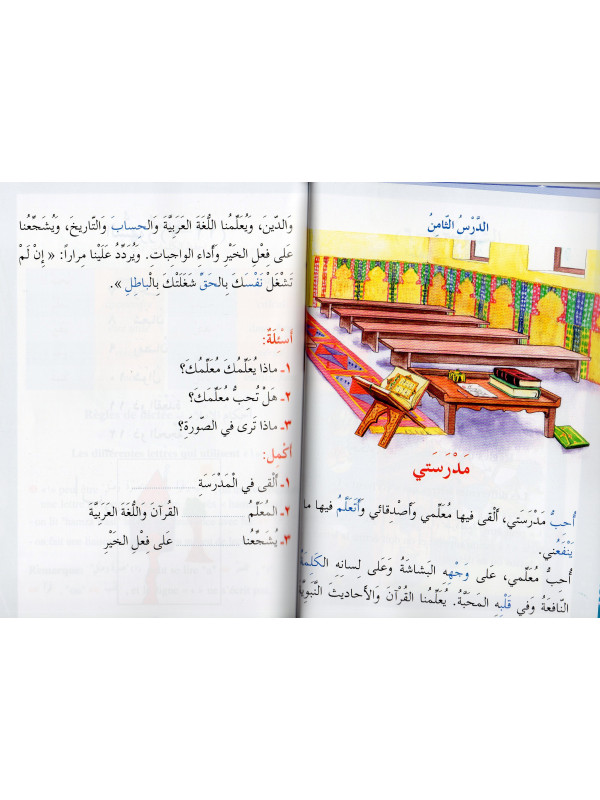 الدَّرْسُ الثّامِنُ
مَدْرَسَتي
أُحِبُّ مَدْرَسَتي، أَلْقى فيها مُعَلِّمي وَأَصْدِقائي وَأَتَعَلَّمُ فيها ما
يَنْفَعُني.
أُحِبُّ مُعَلِّمي، عَلى وَجْهِهِ البَشاشَةُ وَعَلى لِسانِهِ الكَلِمَةُ
النّافِعَةُ وَفي قَلْبِهِ المَحَبَّةُ. يُعَلِّمُنا القُرْآنَ وَالأَحاديثَ النَّبَوِيَّةَ
وَالدّينَ، وَيُعَلِّمُنا اللُّغَةَ العَرَبِيَّةَ وَالحِسابَ وَالتّاريخَ، وَيُشَجِّعُنا
عَلى فِعْلِ الخَيْرِ وَأَداءِ الواجِباتِ. وَيُرَدِّدُ عَلَيْنا مِراراً: « إِنْ لَمْ
تَشْغَلْ نَفْسَكَ بِالحَقِّ شَغَلَتْكَ بِالْباطِلِ ».
أَسْئِلَةٌ:
١ـ ماذا يُعَلِّمُكَ مُعَلِّمُكَ؟
٢ـ هَلْ تُحِبُّ مُعَلِّمَكَ؟
٣ـ ماذا تَرى في الصّورَةِ؟
أَكْمِلْ:
١ـ أَلْقى في الْمَدْرَسَةِ ..........
٢ـ المُعَلِّمُ .......... القُرآنَ وَاللُّغَةَ العَرَبِيَّةَ
٣ـ يُشَجِّعُنا .......... عَلى فِعْلِ الخَيْرِ